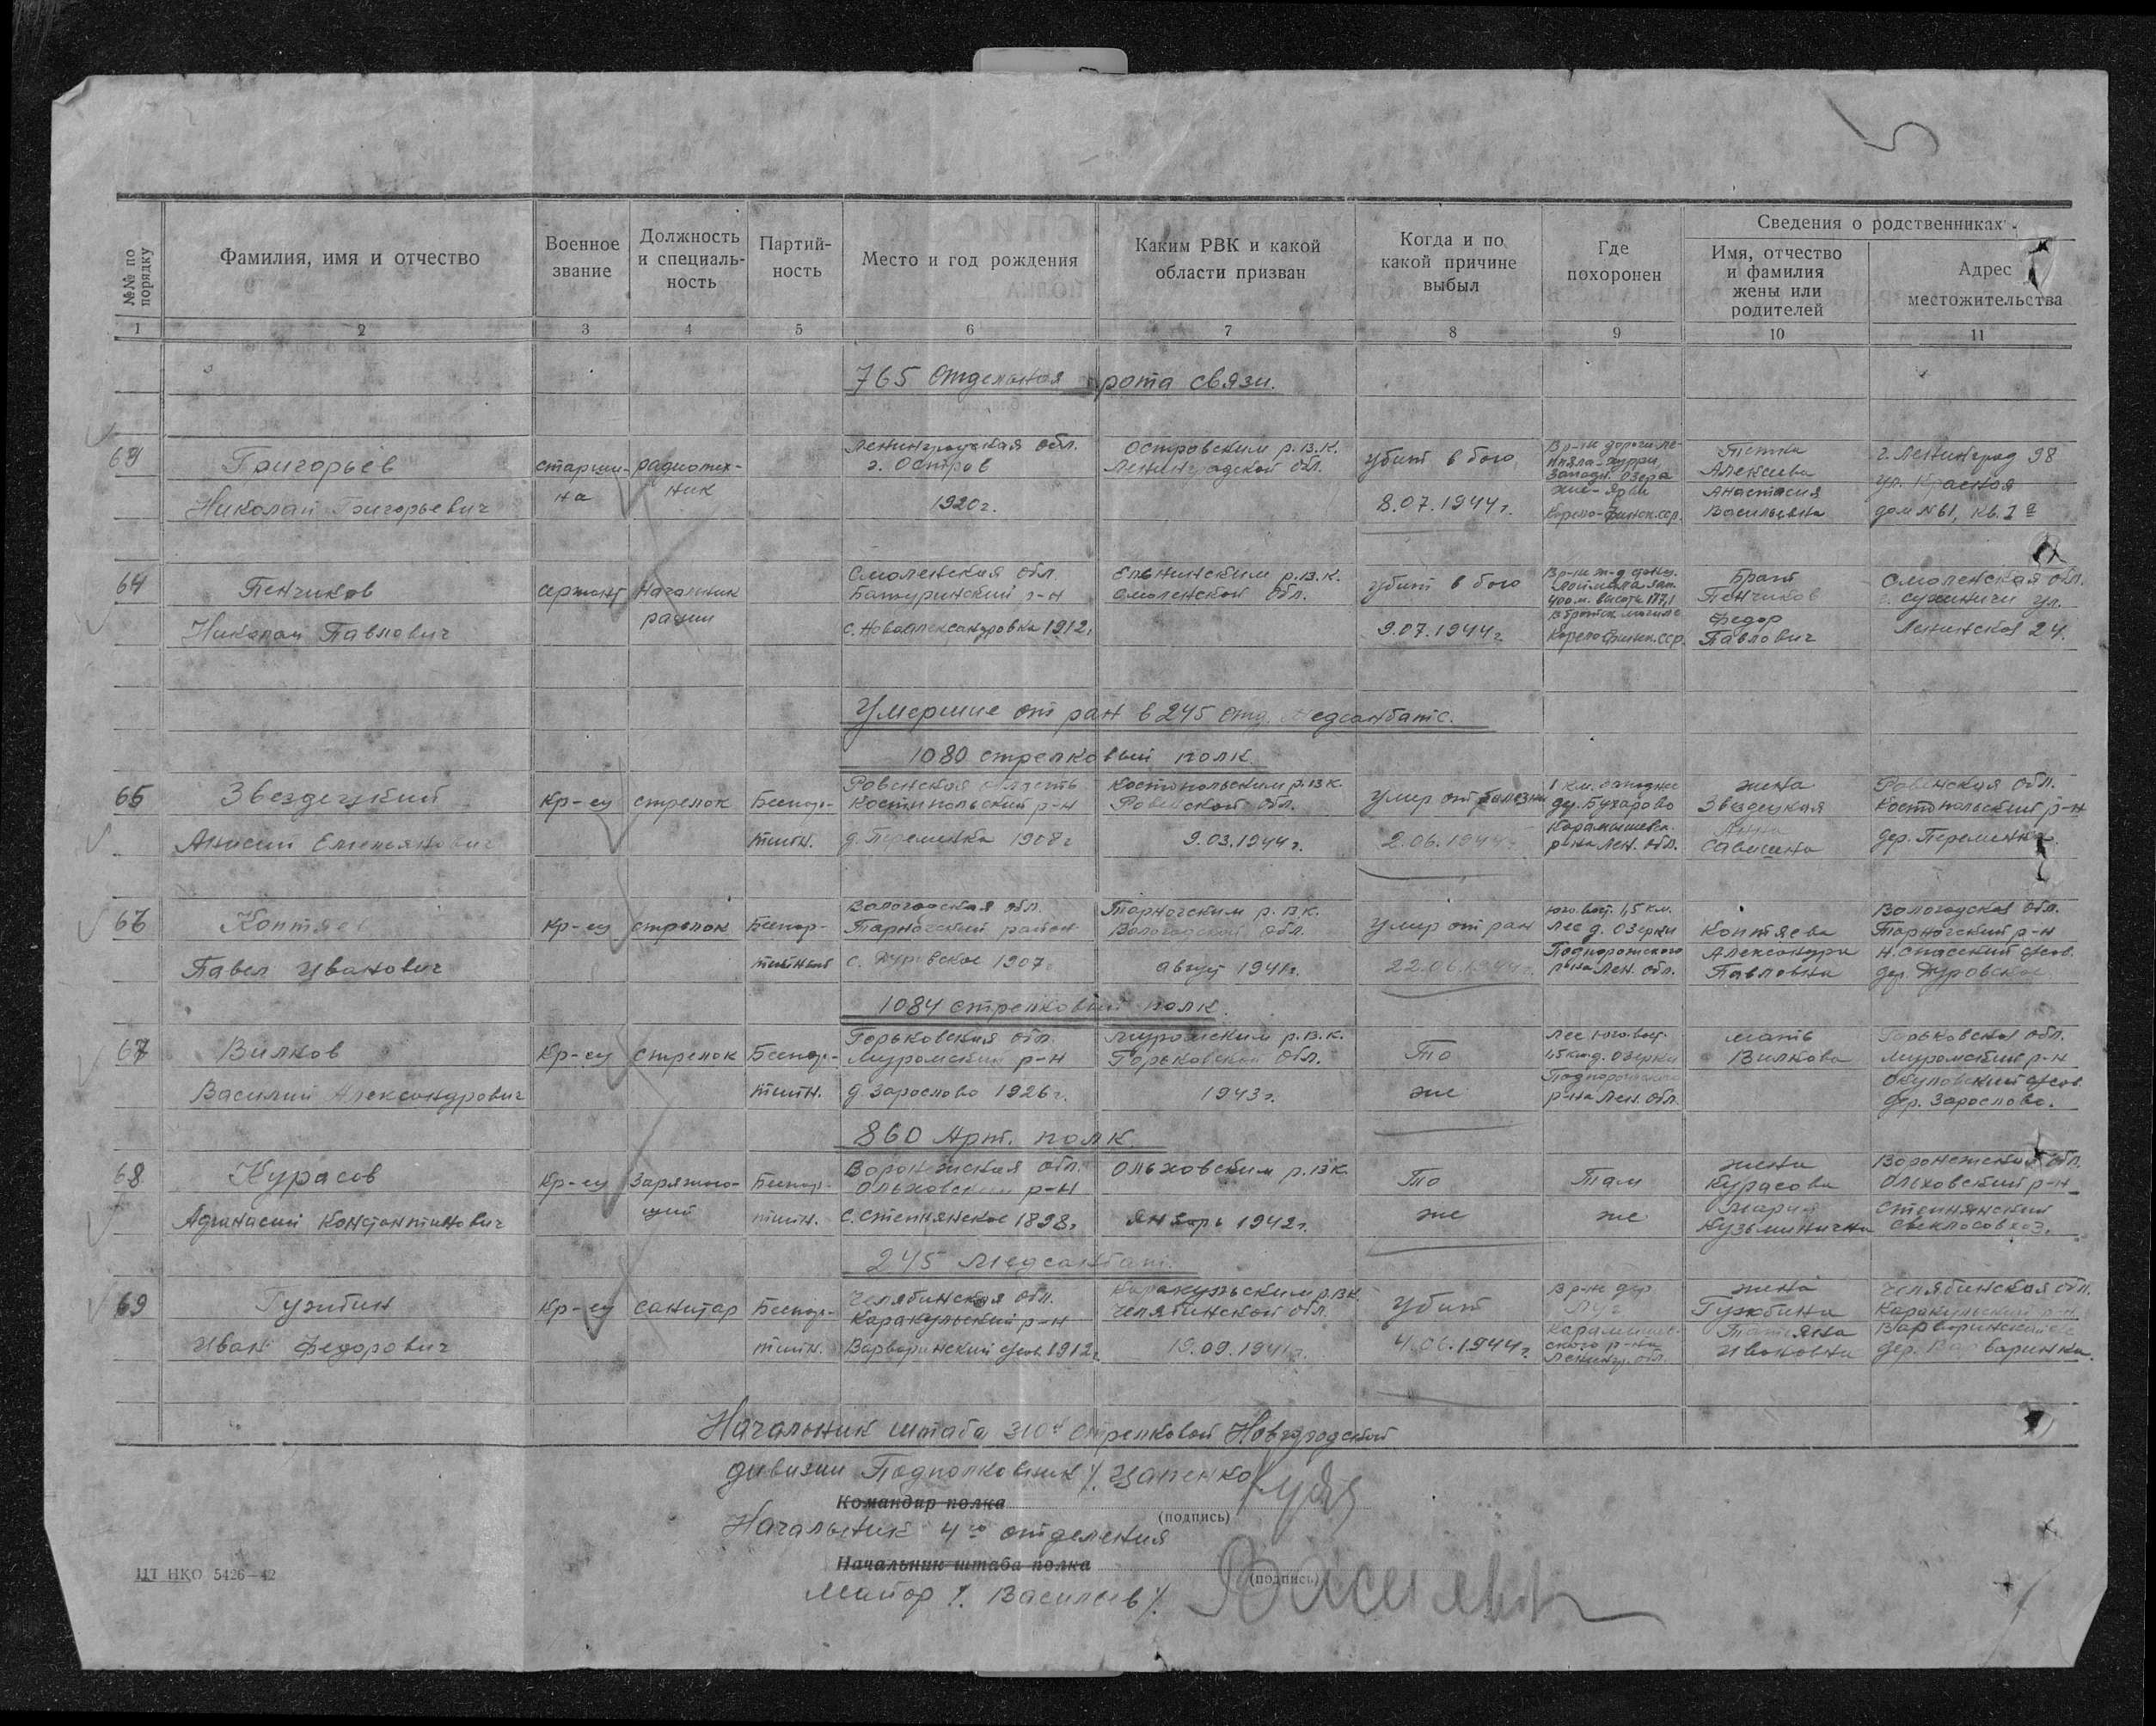 5
№№ по порядку
Фамилия, имя и отчество
Военное звание
Должность и специаль-ность
Партий-ность
Место и год рождения
Каким РВК и какой области призван
Когда и по какой причине выбыл
Где похоронен
Сведения о родственниках
Имя, отчество и фамилия жены или родителей
Адрес местожительства
1 2 3 4 5 6 7 8 9 10 11
765 Отдельная рота связи.
63 Григорьев
Николай Григорьевич
старши-
на
радиотех-
ник
Ленинградская обл.
г. Остров
1920 г.
Островским р.в.к.
Ленинградской обл.
убит в бою
8.07.1944 г.
В р-не дороги
Западн. озера
Карело-Финск. сср.
Тетка
Алексеева
Анастасия
Васильевна
г. Ленинград 98
ул. Красная
дом №61, кв. 1а
64 Пенчиков
Николай Павлович
сержант
Начальник
рации
Смоленская обл.
Батуринский р-н
с. Новоалександровка 1912г
Ельнинским р.в.к.
Смоленской обл.
убит в бою
9.07.1944 г
400 м. высоты 177,1
В братск. могиле
Карело Финск. сср.
Брат
Пенчиков
Федор
Павлович
Смоленская обл.
г. Сухиничи ул.
Ленинская 24.
Умершие от ран в 245 отд. медсанбате.
1080 стрелковый полк
65 Звездецкий
Анисий Емельянович
Кр-ец
стрелок
Беспар-
тийн.
Ровенская область
Костопольский р-н
д. Переменка 1908 г
Костопольским р.в.к
Ровенской обл.
9.03.1944 г.
Умер от болезни
2.06.1944 г
1 км. западнее
дер. Бухарово
Карамышевск.
р-на Лен. обл.
жена
Звездецкая
Анна
Савишна
Ровенская обл.
Костопольский р-н
дер. Переменка
66 Коптяев
Павел Иванович
Кр-ец
стрелок
Беспар-
тийный
Вологодская обл.
Тарногский район
с. Дуровское 1907г.
Тарногским р.в.к.
Вологодской обл.
август 1941г.
Умер от ран
22.06.1944 г.
юго. вост. 1,5 км.
лес д. Озерки
Подпорожского
р-на Лен. обл.
Коптяева
Александра
Павловна
Вологодская обл.
Тарногский р-н
Н. Спасский с/сов.
дер. Дуровское
1084 стрелковый полк.
67 Вилков
Василий Александрович
Кр-ец
стрелок
Беспар-
тийн.
Горьковская обл.
Муромский р-н
д. Зарослово 1926 г.
Муромским р.в.к.
Горьковской обл.
1943 г.
То
же
Лес юго. вост.
1,5 км. д. Озерки
Подпорожского
р-на Лен. обл.
мать
Вилкова
Горьковская обл.
Муромский р-н
Окуловский с/сов.
дер. Зарослово.
860 Арт. полк
68 Курасов
Афанасий Константинович
Кр-ец
Заряжаю-
щий
Беспар-
тийн.
Воронежская обл.
Ольховский р-н
с. Степнянское 1898г
Ольховским р.в.к.
январь 1942 г.
То
же
Там
же
жена
Курасова
Мария
Кузьминична
Воронежская обл.
Ольховский р-н
Степнянский
свеклосовхоз.
245 Медсанбат.
69 Гужбин
Иван Федорович
Кр-ец
санитар
Беспар-
тийн.
Челябинская обл.
Каракульский р-н
Варваринский с/сов. 1912г.
Каракульским р.вк
Челябинской обл.
19.09.1941г.
Убит
4.06.1944 г.
В р-не дер
Луг
Карамышев-
ского р-на
Ленингр. обл.
жена
Гужбина
Татьяна
Ивановна
Челябинская обл.
Каракульский р-н
Варваринский с/с
дер. Варваринка.
Начальник штаба 310й стрелковой Новгородской
дивизии Подполковник /. Цапенко/
Командир полка
(подпись)
Начальник 4го отделения
Начальник штаба полка
(подпись)
Майор /. Васильев /.
Васильев
ЦТ НКО 5426—42